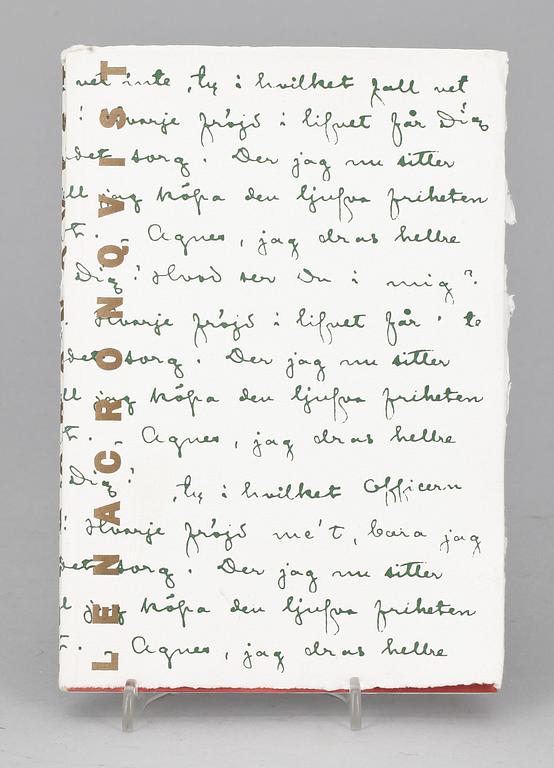 LENA CRONQVIST
vet inte, ty i hvilket fall vet
! Hvarje fröjd i lifvet får Dig
ndet sorg. Der jag nu sitter
ll jag köpa den ljufva friheten
t. Agnes, jag dras hellre
Dig! Hvad ser Du i mig?
Hvarje fröjd i lifvet får te
det sorg. Der jag nu sitter
ll jag köpa den ljufva friheten
t. Agnes, jag dras hellre
Dig! ty i hvilket Officern
! Hvarje fröjd me't, bara jag
det sorg. Der jag nu sitter
l jag köpa den ljufva friheten
t. Agnes, jag dras hellre